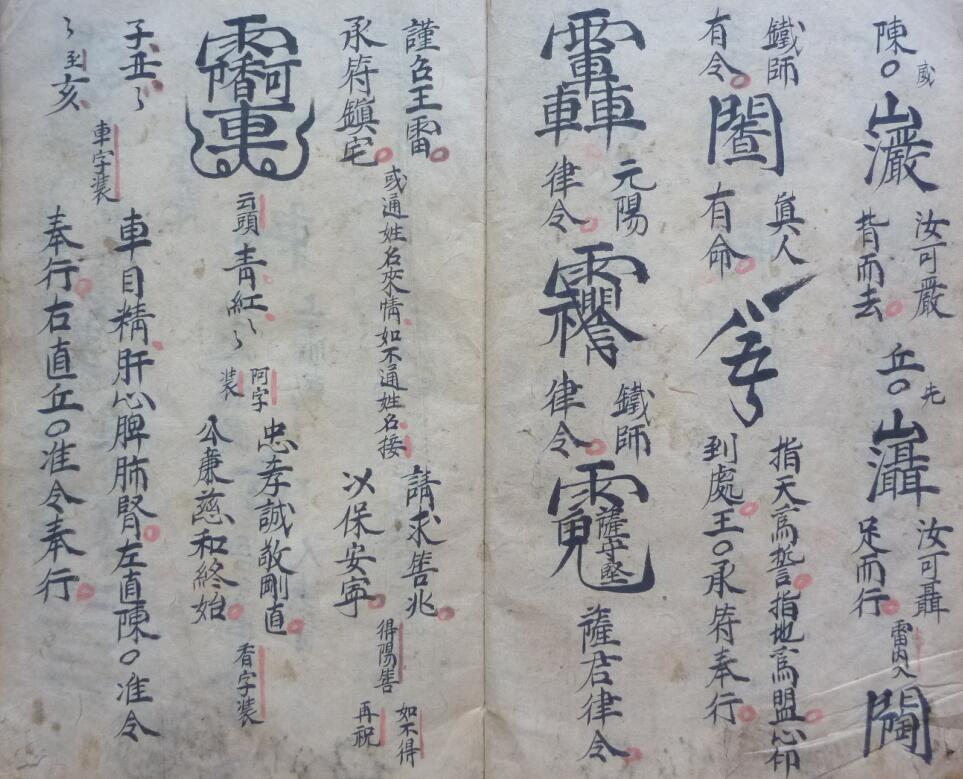 陳〇
汝可嚴
昔而去
丘〇
先
汝可聶
足而行
雷内入
鐵師
有令
真人
有命
指天爲誓指地爲盟心印
到處王〇承符奉行
元陽
律令
鐵師
律令
薩守堅
薩君律令
謹召王雷
承符鎮宅
或通姓名來情如不通姓名接
請求善兆
以保安寧
得陽善
如不得
再祝
雲頭
青紅
阿字
装
忠孝誠敬剛直
公廉慈和終始
香字装
子丑
到亥
車字装
車目精肝心脾肺腎左直陳〇准令
奉行右直丘〇准令奉行